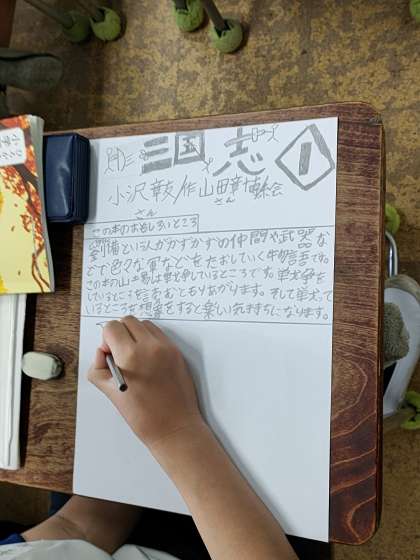 三国志 1
小沢章友/作山田章博/絵
さん さん
この本のおもしろいところ
劉備という人がかずかずの仲間や武器な
どで色々な軍などをたおしていく物語です。
この本の山場は戦争しているところです。戦争を
しているところを読むともりあがります。そして戦って
いるところを想像をすると楽しい気持ちになります。